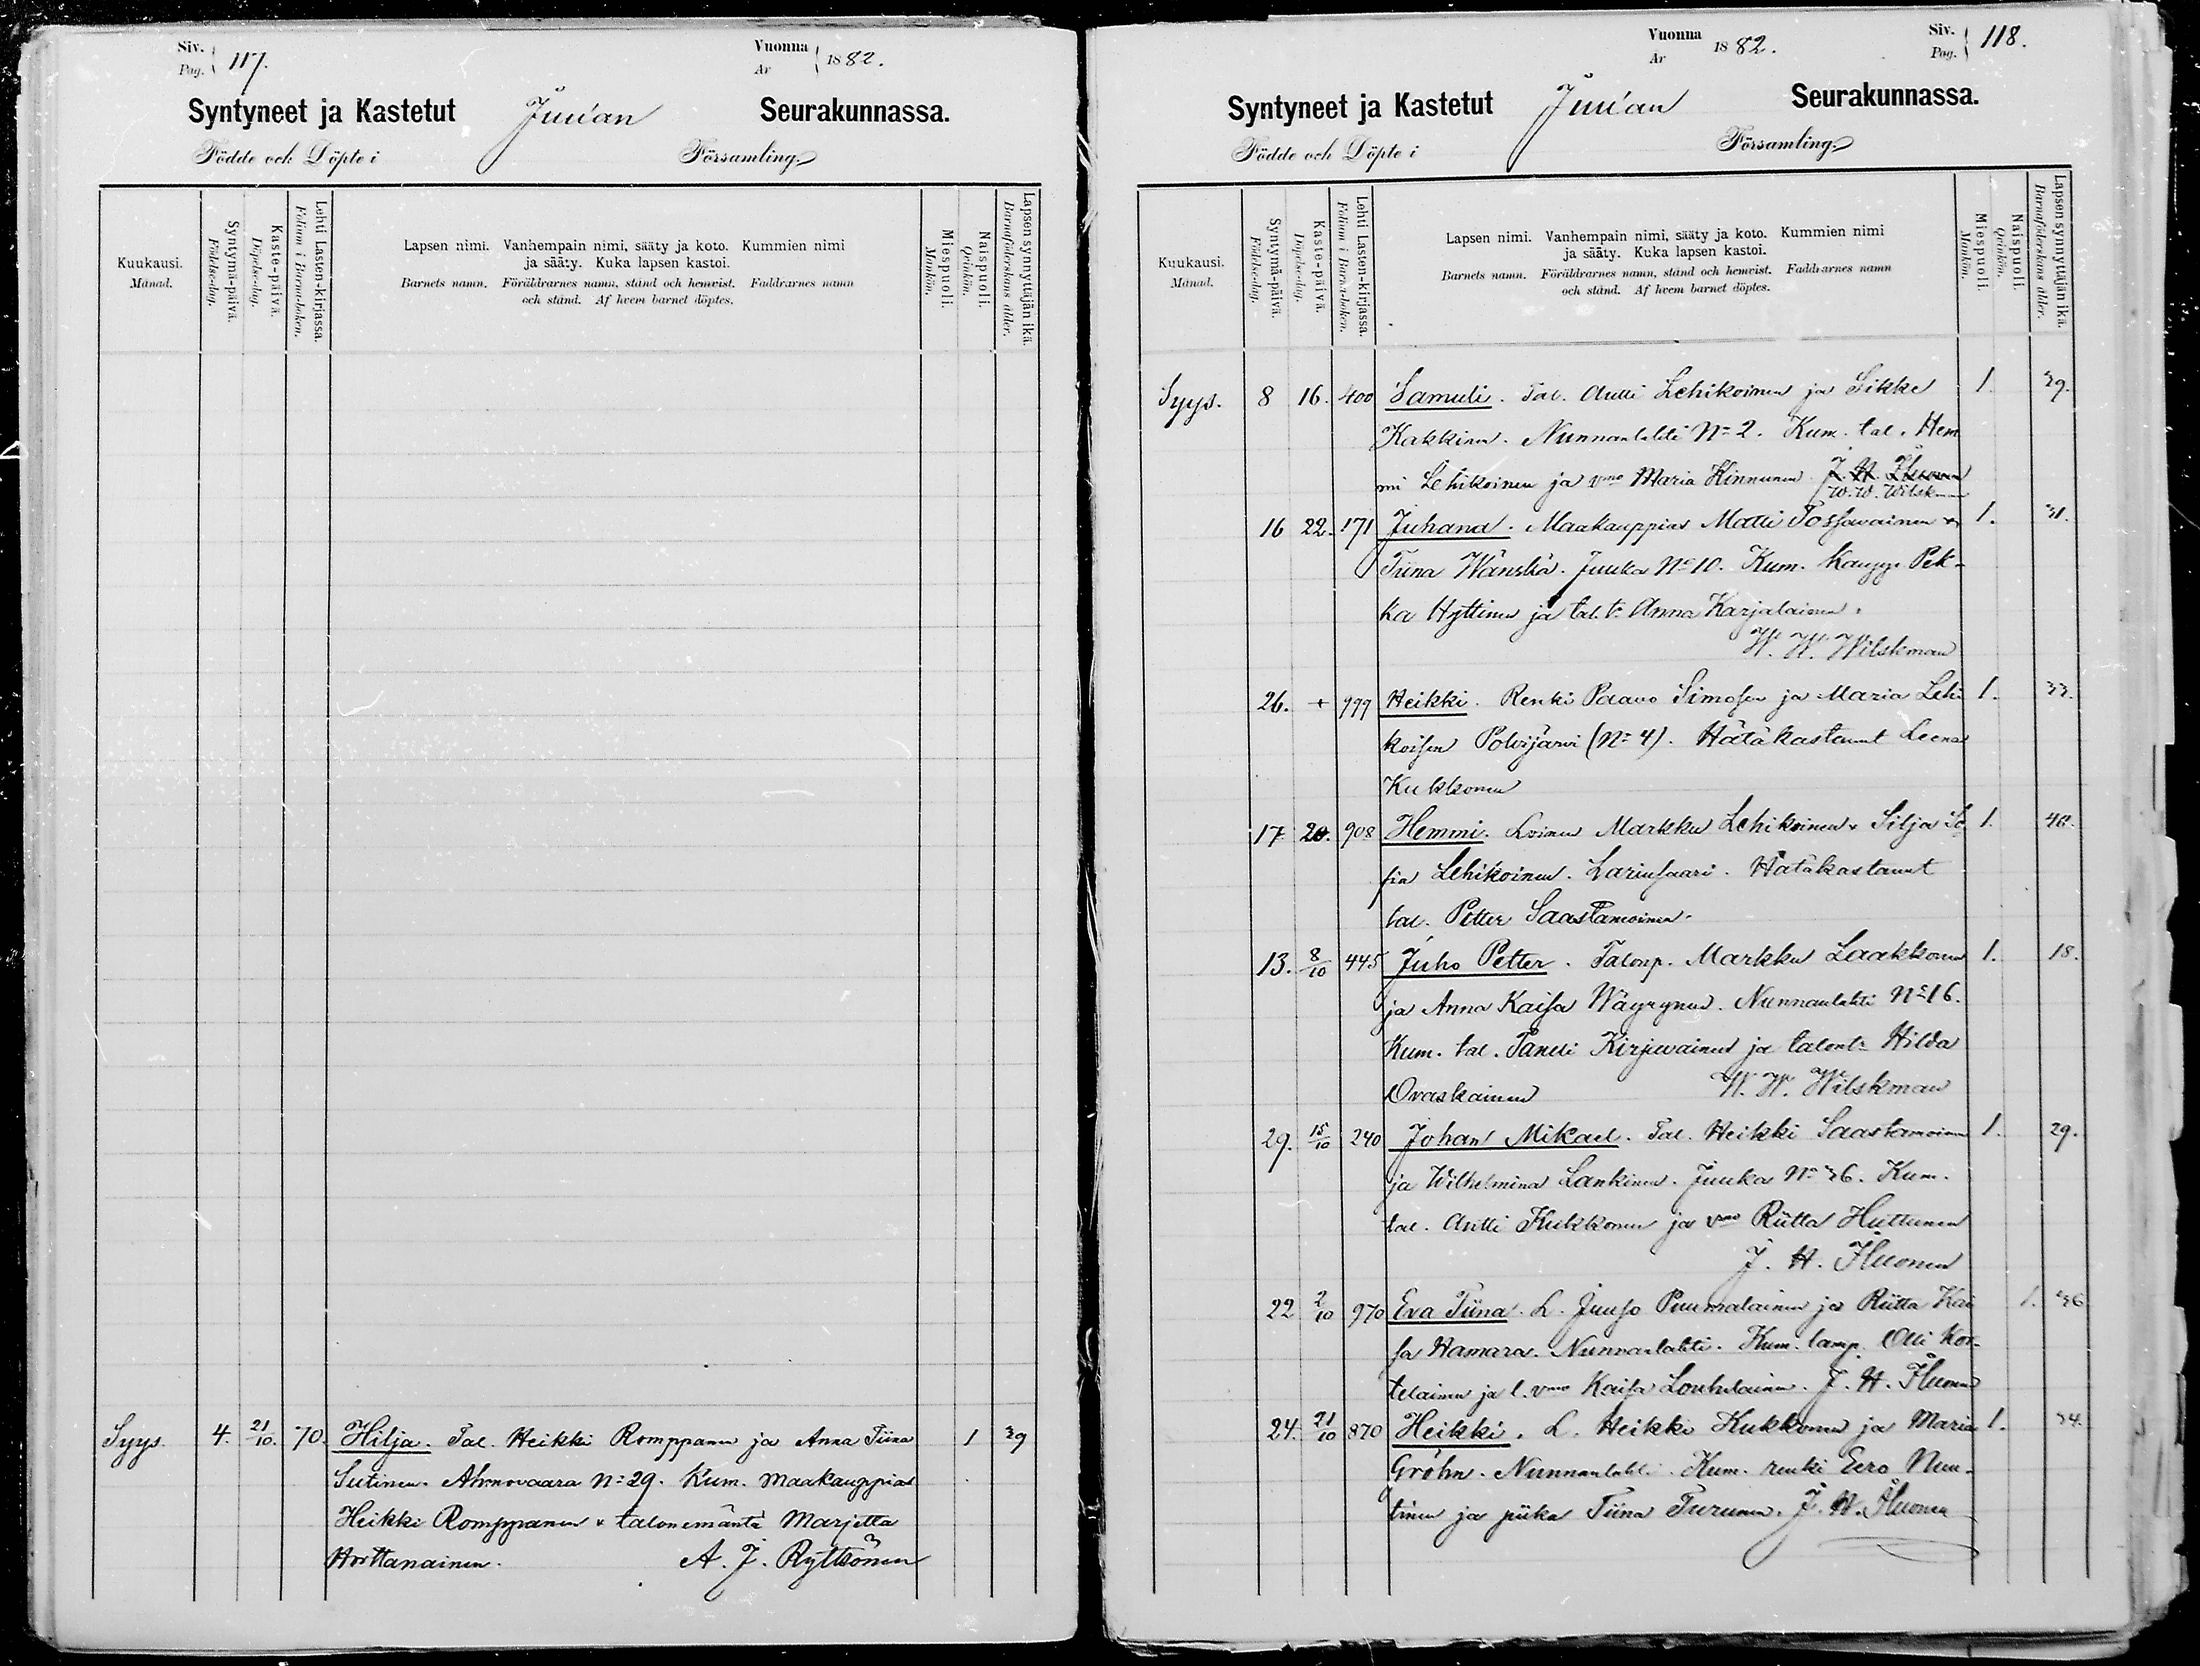 Siv.
Pag. 117.
Vuonna
År 1882.
Syntyneet ja Kastetut Juuan Seurakunnassa.
Födde och Döpte i Församling.
Kuukausi.
Månad.
Syntymä-päivä.
Födelsedag.
Kaste-päivä.
Döpelsedag.
Lehti Lasten-kirjassa.
Folium i Barna-boken.
Lapsen nimi. Vanhempain nimi, sääty ja koto. Kummien nimi
ja sääty. Kuka lapsen kastoi.
Barnets namn. Föräldrarnes namn, stånd och hemvist. Faddrarnes namn
och stånd. Af hvem barnet döptes.
Miespuoli.
Mankön.
Naispuoli.
Qvinkön.
Lapsen synnyttäjän ikä.
Barnaföderskans ålder.
Syys. 4. 21/10. 70. Hilja. Tal. Heikki Romppanen ja Anna Tiina 1 39
Sutinen. Ahmovaara N:29. Kum. maakauppias
Heikki Romppanen & talonemäntä Marjetta
Horttanainen. A. J. Rytkönen
Vuonna
År 1882.
Siv.
Pag. 118.
Syntyneet ja Kastetut Juuan Seurakunnassa.
Födde och Döpte i Församling.
Kuukausi.
Månad.
Syntymä-päivä.
Födelsedag.
Kaste-päivä.
Döpelsedag.
Lehti Lasten-kirjassa.
Folium i Barna-boken.
Lapsen nimi. Vanhempain nimi, sääty ja koto. Kummien nimi
ja sääty. Kuka lapsen kastoi.
Barnets namn. Föräldrarnes namn, stånd och hemvist. Faddrarnes namn
och stånd. Af hvem barnet döptes.
Miespuoli.
Mankön.
Naispuoli.
Qvinkön.
Lapsen synnyttäjän ikä.
Barnaföderskans ålder.
Syys. 8 16. 400 Samuli. Tal. Antti Lehikoinen ja Sikke 1. 39.
Kakkinen. Nunnanlahti N:2. Kum. tal. Hem
mi Lehikoinen ja vmo Maria Kinnunen. J. H. Iluonen
W. W. Wilskman
16 22. 171 Juhana. Maakauppias Matti Tossavainen & 1. 31.
Tiina Wänskä. Juuka No 10. Kum. Kaupp. Pek-
ka Hyttinen ja tal. tr Anna Karjalainen.
W. W. Wilskman
26. + 999 Heikki. Renki Paavo Simosen ja Maria Lehi 1. 33.
koisen Polvijärvi (N:4). Hätäkastanut Leena
Kukkonen
17 20. 908 Hemmi. Loinen Markku Lehikoinen & Silja So 1. 40.
fia Lehikoinen. Larinsaari. Hätäkastanut
tal. Petter Saastamoinen.
13. 8/10 445 Juho Petter. Talonp. Markku Laakkonen 1. 18.
ja Anna Kaisa Wäyrynen. Nunnanlahti No 16.
Kum. tal. Taneli Kirjavainen ja talontr Hilda
Ovaskainen W. W. Wilskman
29. 15/10 240 Johan Mikael. Tal. Heikki Saastamoinen 1. 29.
ja Wilhelmina Lankinen. Juuka No 36. Kum.
tal. Antti Kukkonen ja vmo Riitta Huttunen
J. H. Iluonen
22 2/10 970 Eva Tiina. L. Juuso Puumalainen ja Riitta Kai 1. 36
sa Hamara. Nunnanlahti. Kum. lamp. Olli Kor-
telainen ja l. vmo Kaisa Louhelainen. J. H. Iluonen
24. 21/10 870 Heikki. L. Heikki Kukkonen ja Maria 1. 34.
Gröhn. Nunnanlahti. Kum. renki Eero Nuu-
tinen ja piika Tiina Turunen. J. H. Iluonen